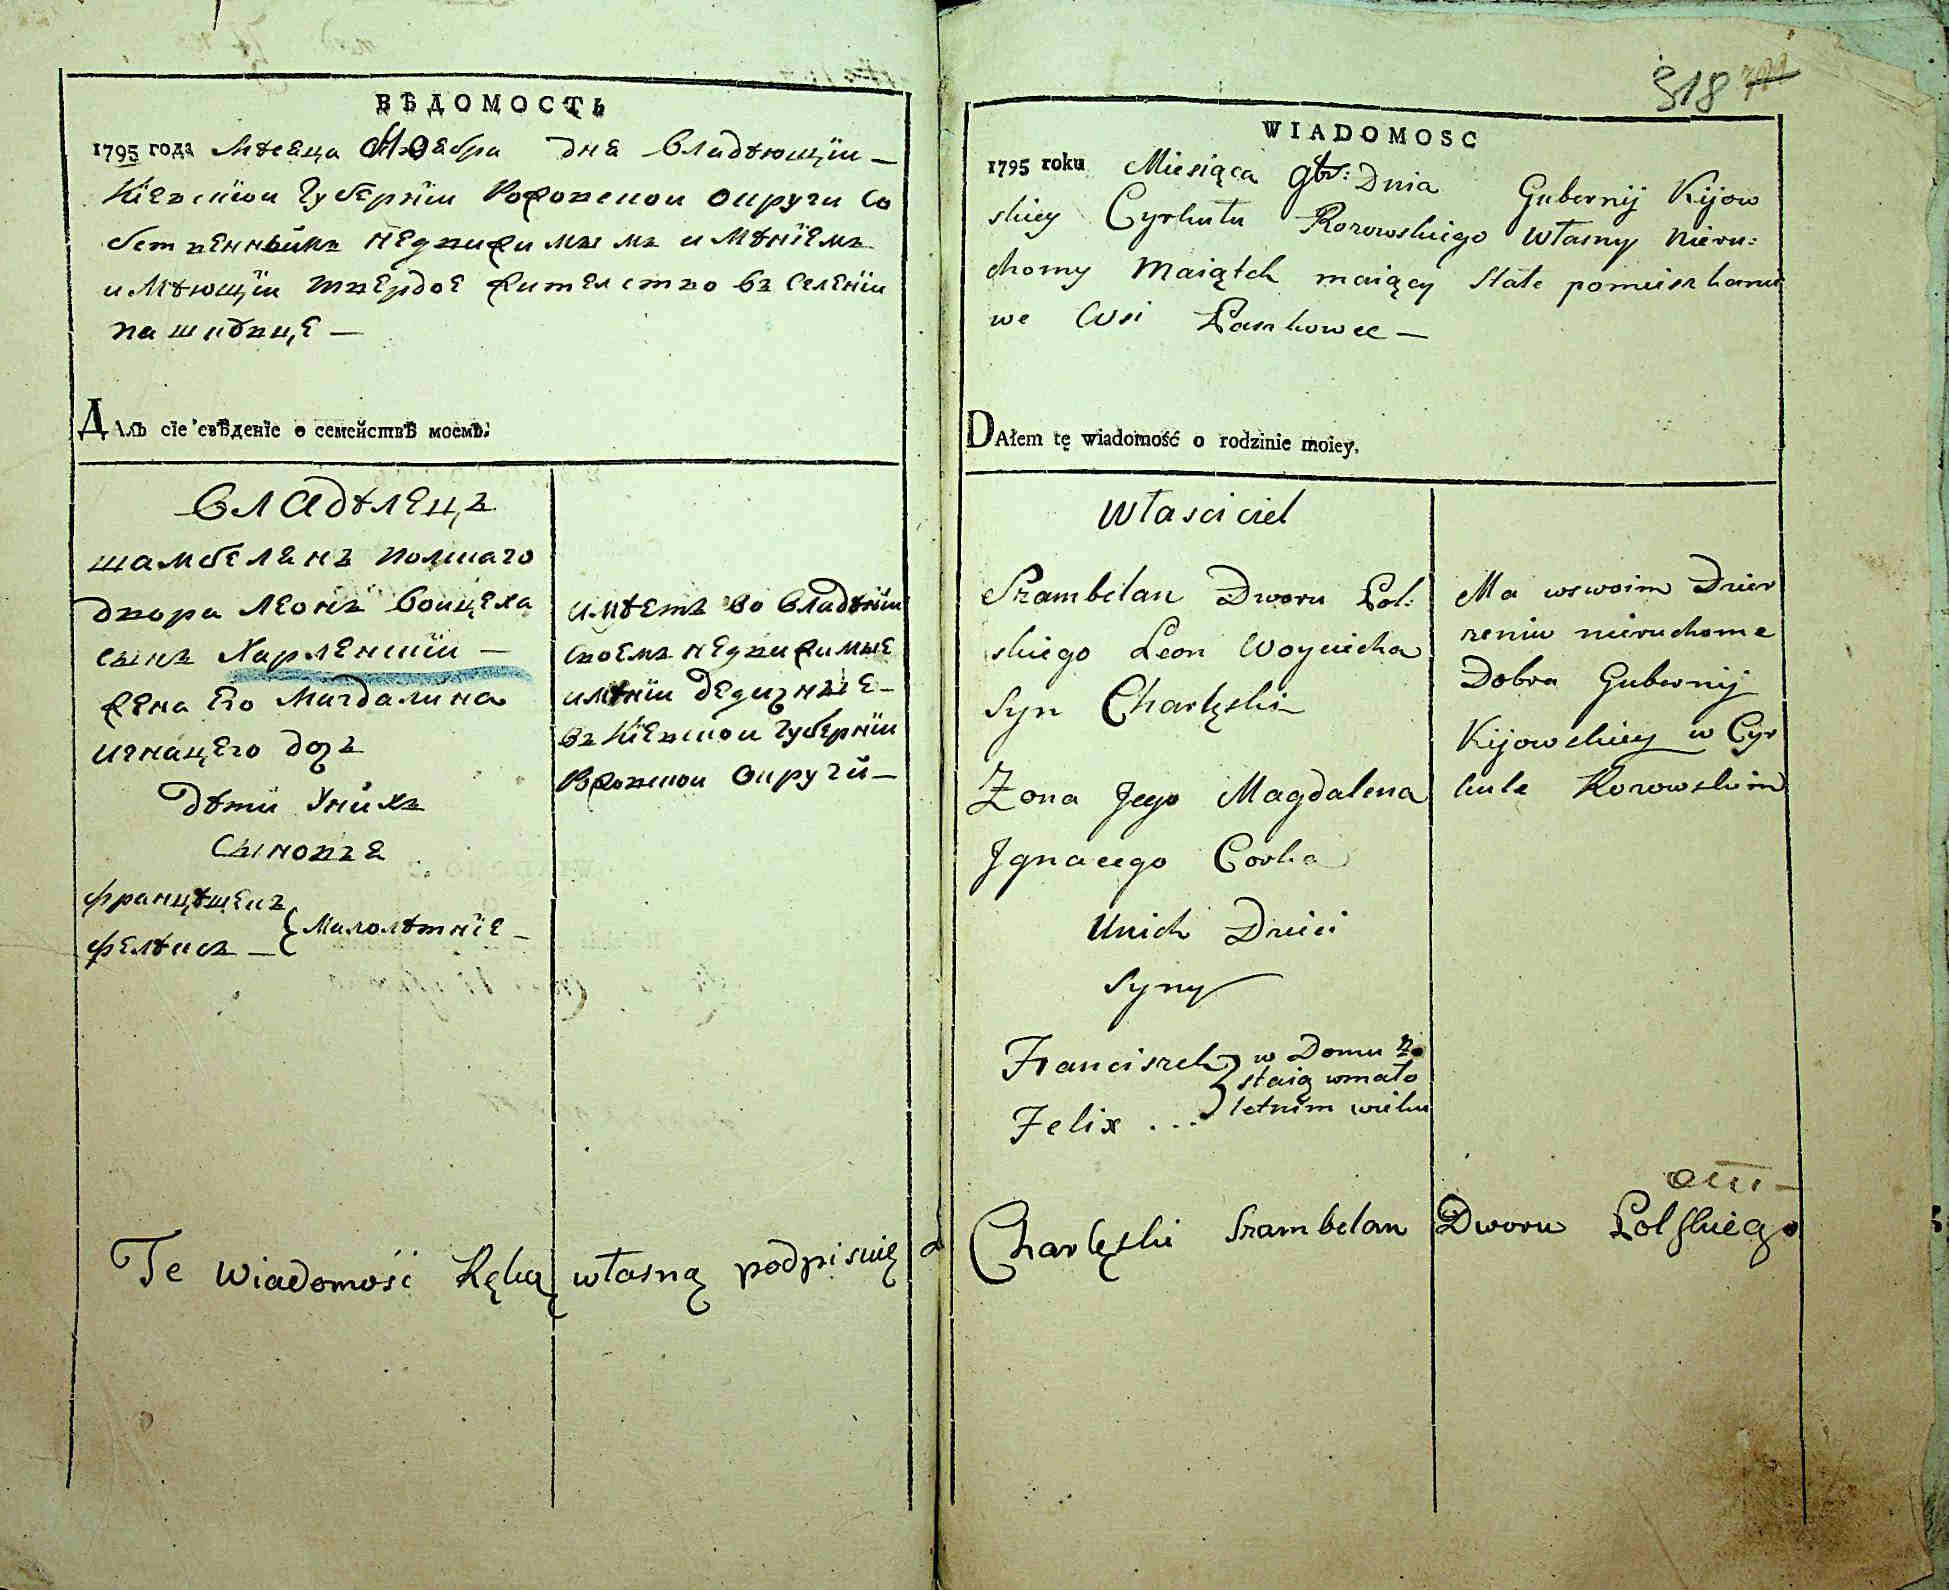 ВѢДОМОСТЬ
1795 года Мѣсяца Ноября дня Владѣющiи —
Кiевскои Губернiи округи со
бственнымъ недвижимымъ имѣнiемъ
имѣющiи твердое жителство въ селенiи
Пашковце —
ДАлъ сїе свѣденїе о семействѣ моемъ:
Владѣлецъ
шамбелянъ полскаго
двора Леонъ Воицеха
сынъ Харленскiи —
жена Его Магдалина
игнацего дочь
дѣти Унихъ
Сыновья
францѣшекъ
фелѣксъ — { Малолѣтнiе —
имѣетъ во владѣнiи
своемъ недвижимые
имѣнiи дедизные —
въ Кiевскои губернiи
округи —
318
WIADOMOSC
1795 roku Miesiąca 9br: Dnia Gubernij Kijow
skiey Cyrkułu Własny Nieru:
chomy Maiątek maiący Stałe pomieszkanie
we Wsi Paszkowce —
DAłem tę wiadomość o rodzinie moiey.
Własciciel
Szambelan Dworu Pol:
skiego Leon Woyciecha
Syn Charlęski
Zona Jego Magdalena
Jgnacego Corka
Unich Dzieci
Syny
Franciszek } w Domu zo
staią wmało
Felix ... letnim wieku
Ma wswoim Dzier
zeniu nieruchome
Dobra Gubernij
Kijowskiey w Cyr
kule
Te Wiadomość Ręką własną podpisuię
Charlęski Szambelan Dworu Polskiego